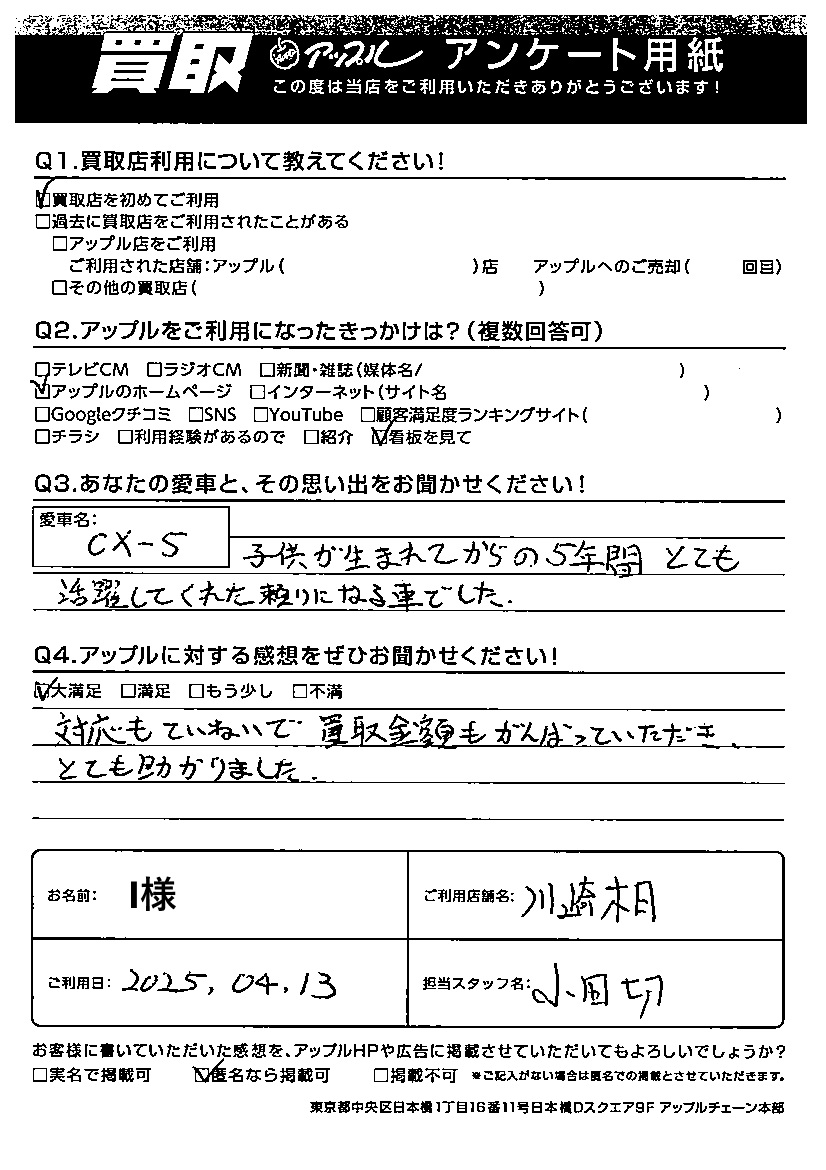 買取 アップル アンケート用紙
この度は当店をご利用いただきありがとうございます!
Q1.買取店利用について教えてください!
☑買取店を初めてご利用
□過去に買取店をご利用されたことがある
□アップル店をご利用
ご利用された店舗:アップル( )店 アップルへのご売却( 回目)
□その他の買取店( )
Q2.アップルをご利用になったきっかけは?(複数回答可)
□テレビCM □ラジオCM □新聞・雑誌(媒体名/ )
☑アップルのホームページ □インターネット(サイト名 )
□Googleクチコミ □SNS □YouTube □顧客満足度ランキングサイト( )
□チラシ □利用経験があるので □紹介 ☑看板を見て
Q3.あなたの愛車と、その思い出をお聞かせください!
愛車名:
CX-5 子供が生まれてからの5年間 とても
活躍してくれた頼りになる車でした.
Q4.アップルに対する感想をぜひお聞かせください!
☑大満足 □満足 □もう少し □不満
対応もていねいで 買取金額もがんばっていただき、
とても助かりました.
お名前: I様 ご利用店舗名: 川崎
ご利用日: 2025, 04.13 担当スタッフ名: 小田切
お客様に書いていただいた感想を、アップルHPや広告に掲載させていただいてもよろしいでしょうか?
□実名で掲載可 ☑匿名なら掲載可 □掲載不可 ※ご記入がない場合は匿名での掲載とさせていただきます。
東京都中央区日本橋1丁目16番11号日本橋Dスクエア9F アップルチェーン本部